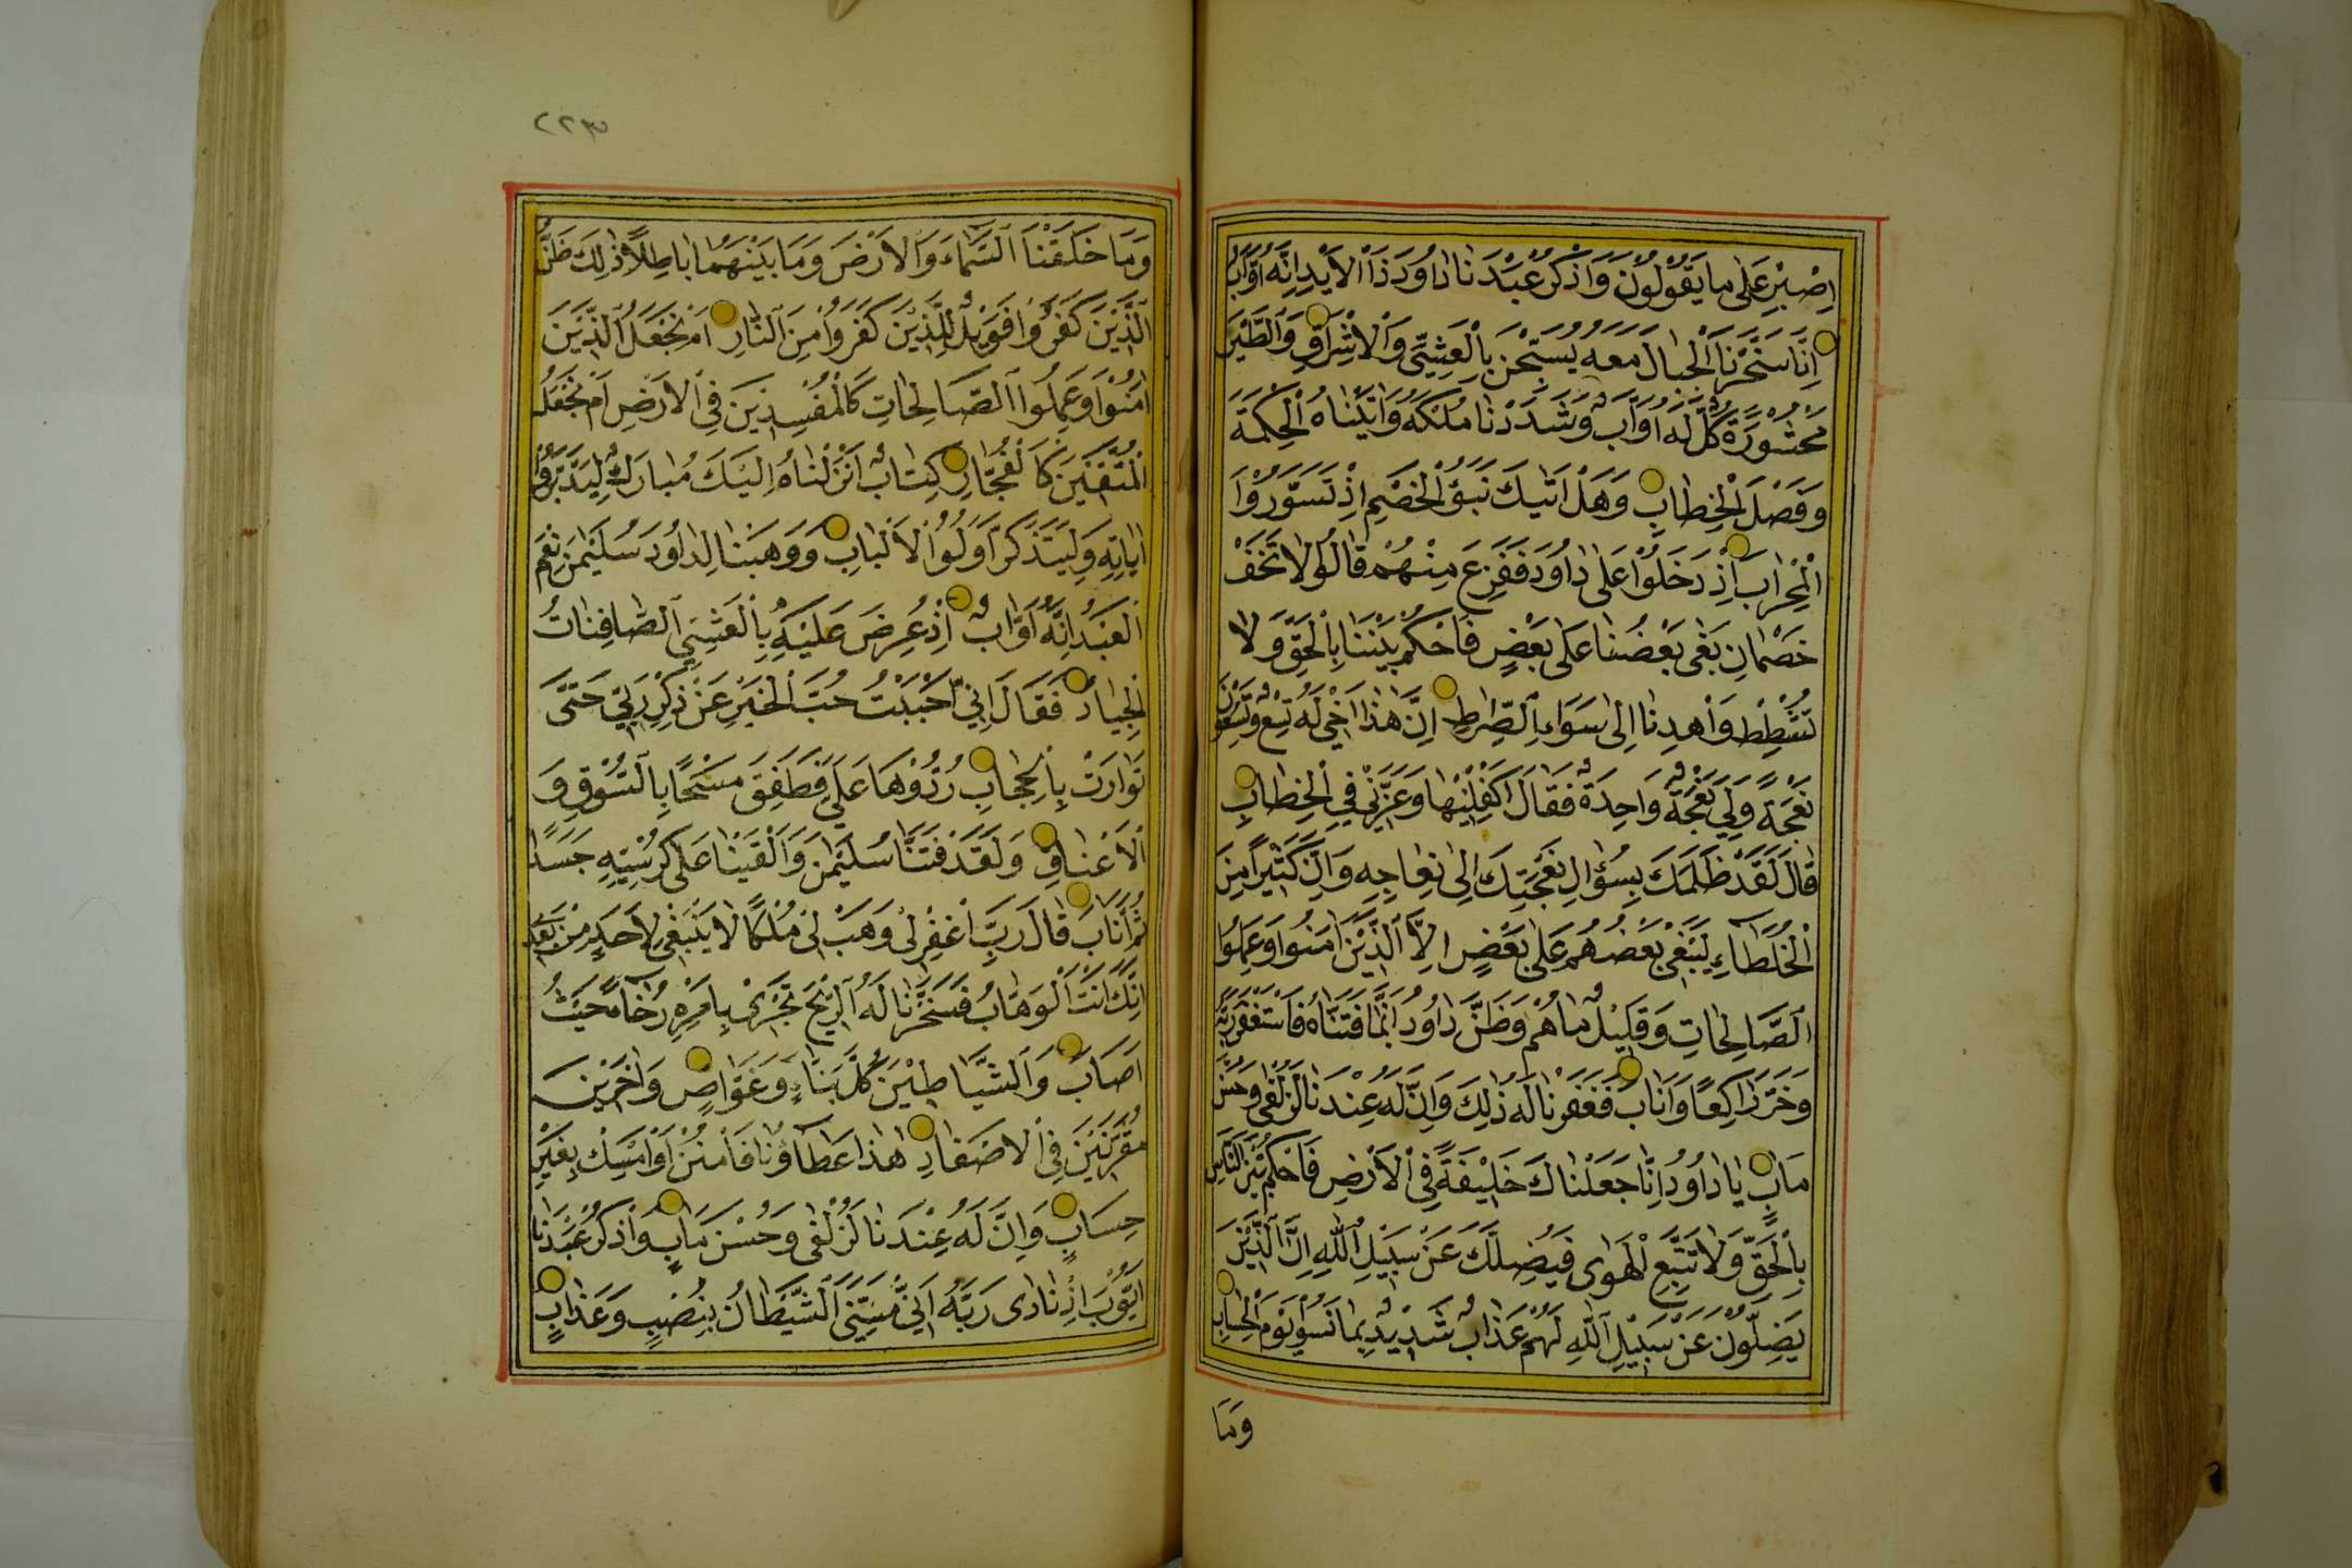 اِصْبِرْ عَلٰى مَا يَقُوْلُوْنَ وَاذْكُرْ عَبْدَنَا دَاوُدَ ذَا الْاَيْدِ اِنَّهُ اَوَّابٌ
اِنَّا سَخَّرْنَا الْجِبَالَ مَعَهُ يُسَبِّحْنَ بِالْعَشِيِّ وَالْاِشْرَاقِ وَالطَّيْرَ
مَحْشُوْرَةً كُلٌّ لَهُ اَوَّابٌ وَشَدَدْنَا مُلْكَهُ وَاٰتَيْنَاهُ الْحِكْمَةَ
وَفَصْلَ الْخِطَابِ وَهَلْ اَتٰيكَ نَبَؤُا الْخَصْمِ اِذْ تَسَوَّرُوْا
الْمِحْرَابَ اِذْ دَخَلُوْا عَلٰى دَاوُدَ فَفَزِعَ مِنْهُمْ قَالُوْا لَا تَخَفْ
خَصْمَانِ بَغٰى بَعْضُنَا عَلٰى بَعْضٍ فَاحْكُمْ بَيْنَنَا بِالْحَقِّ وَلَا
تُشْطِطْ وَاهْدِنَا اِلٰى سَوَاءِ الصِّرَاطِ اِنَّ هٰذَا اَخِيْ لَهُ تِسْعٌ وَتِسْعُوْنَ
نَعْجَةً وَلِيَ نَعْجَةٌ وَاحِدَةٌ فَقَالَ اَكْفِلْنِيْهَا وَعَزَّنِيْ فِي الْخِطَابِ
قَالَ لَقَدْ ظَلَمَكَ بِسُؤَالِ نَعْجَتِكَ اِلٰى نِعَاجِهِ وَاِنَّ كَثِيْرًا مِنَ
الْخُلَطَاءِ لَيَبْغِيْ بَعْضُهُمْ عَلٰى بَعْضٍ اِلَّا الَّذِيْنَ اٰمَنُوْا وَعَمِلُوا
الصَّالِحَاتِ وَقَلِيْلٌ مَا هُمْ وَظَنَّ دَاوُدُ اَنَّمَا فَتَنَّاهُ فَاسْتَغْفَرَ رَبَّهُ
وَخَرَّ رَاكِعًا وَاَنَابَ فَغَفَرْنَا لَهُ ذٰلِكَ وَاِنَّ لَهُ عِنْدَنَا لَزُلْفٰى وَحُسْنَ
مَاٰبٍ يَا دَاوُدُ اِنَّا جَعَلْنَاكَ خَلِيْفَةً فِي الْاَرْضِ فَاحْكُمْ بَيْنَ النَّاسِ
بِالْحَقِّ وَلَا تَتَّبِعِ الْهَوٰى فَيُضِلَّكَ عَنْ سَبِيْلِ اللّٰهِ اِنَّ الَّذِيْنَ
يَضِلُّوْنَ عَنْ سَبِيْلِ اللّٰهِ لَهُمْ عَذَابٌ شَدِيْدٌ بِمَا نَسُوْا يَوْمَ الْحِسَابِ
وَمَا
٢٢٣
وَمَا خَلَقْنَا السَّمَاءَ وَالْاَرْضَ وَمَا بَيْنَهُمَا بَاطِلًا ذٰلِكَ ظَنُّ
الَّذِيْنَ كَفَرُوْا فَوَيْلٌ لِلَّذِيْنَ كَفَرُوْا مِنَ النَّارِ اَمْ نَجْعَلُ الَّذِيْنَ
اٰمَنُوْا وَعَمِلُوا الصَّالِحَاتِ كَالْمُفْسِدِيْنَ فِي الْاَرْضِ اَمْ نَجْعَلُ
الْمُتَّقِيْنَ كَالْفُجَّارِ كِتَابٌ اَنْزَلْنَاهُ اِلَيْكَ مُبَارَكٌ لِيَدَّبَّرُوْا
اٰيَاتِهِ وَلِيَتَذَكَّرَ اُولُوا الْاَلْبَابِ وَوَهَبْنَا لِدَاوُدَ سُلَيْمٰنَ نِعْمَ
الْعَبْدُ اِنَّهُ اَوَّابٌ اِذْ عُرِضَ عَلَيْهِ بِالْعَشِيِّ الصَّافِنَاتُ
الْجِيَادُ فَقَالَ اِنِّيْ اَحْبَبْتُ حُبَّ الْخَيْرِ عَنْ ذِكْرِ رَبِّيْ حَتّٰى
تَوَارَتْ بِالْحِجَابِ رُدُّوْهَا عَلَيَّ فَطَفِقَ مَسْحًا بِالسُّوْقِ وَ
الْاَعْنَاقِ وَلَقَدْ فَتَنَّا سُلَيْمٰنَ وَاَلْقَيْنَا عَلٰى كُرْسِيِّهِ جَسَدًا
ثُمَّ اَنَابَ قَالَ رَبِّ اغْفِرْ لِيْ وَهَبْ لِيْ مُلْكًا لَا يَنْبَغِيْ لِاَحَدٍ مِنْ بَعْدِيْ
اِنَّكَ اَنْتَ الْوَهَّابُ فَسَخَّرْنَا لَهُ الرِّيْحَ تَجْرِيْ بِاَمْرِهِ رُخَاءً حَيْثُ
اَصَابَ وَالشَّيَاطِيْنَ كُلَّ بَنَّاءٍ وَغَوَّاصٍ وَاٰخَرِيْنَ
مُقَرَّنِيْنَ فِي الْاَصْفَادِ هٰذَا عَطَاؤُنَا فَامْنُنْ اَوْ اَمْسِكْ بِغَيْرِ
حِسَابٍ وَاِنَّ لَهُ عِنْدَنَا لَزُلْفٰى وَحُسْنَ مَاٰبٍ وَاذْكُرْ عَبْدَنَا
اَيُّوْبَ اِذْ نَادٰى رَبَّهُ اَنِّيْ مَسَّنِيَ الشَّيْطَانُ بِنُصْبٍ وَعَذَابٍ